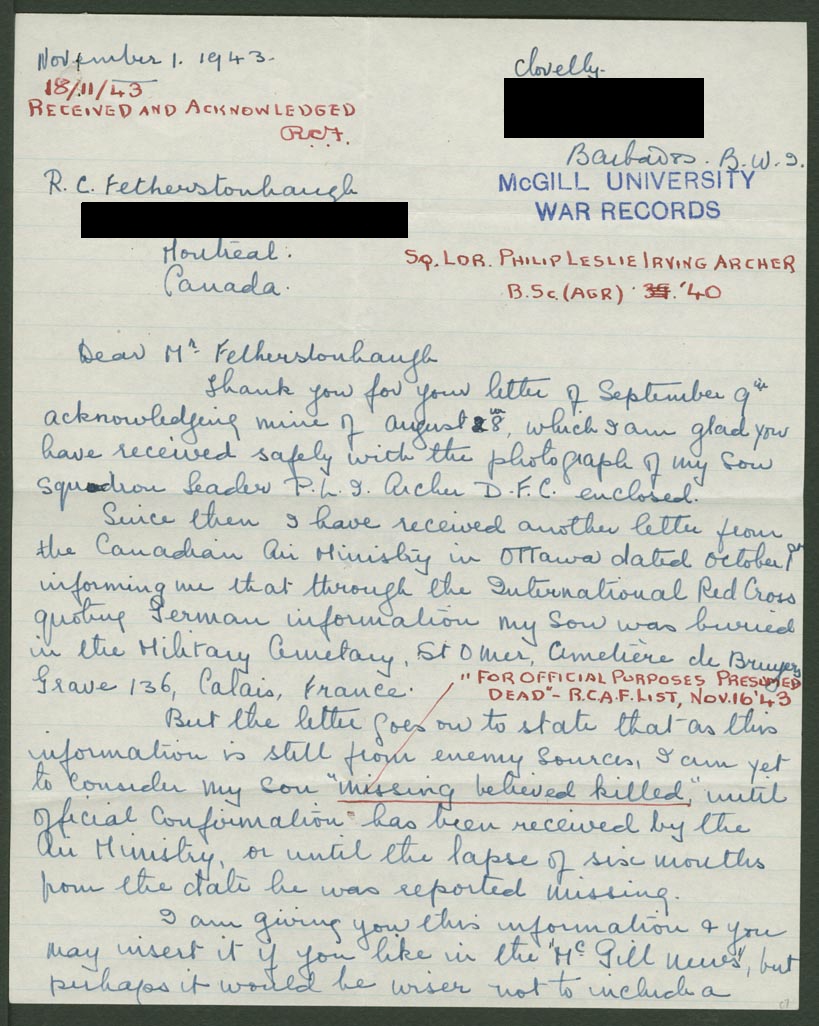 November 1. 1943.
18/11/43
RECEIVED AND ACKNOWLEDGED
R.C.F.
Clovelly.
Barbados. B.W.I.
McGILL UNIVERSITY
WAR RECORDS
R. C. Fetherstonhaugh
Montreal.
Canada.
SQ. LDR. PHILIP LESLIE IRVING ARCHER
B.Sc. (AGR) '40
Dear Mr Fetherstonhaugh
Thank you for your letter of September 9th
acknowledging mine of August 28th, which I am glad you
have received safely with the photograph of my Son
Squadron Leader P. L. I. Archer D.F.C. enclosed.
Since then I have received another letter from
the Canadian Air Ministry in Ottawa dated October 1st
informing me that through the International Red Cross
quoting German information my Son was buried
in the Military Cemetary, St Omer, Cimetière de Bruyers
Grave 136, Calais, France.
"FOR OFFICIAL PURPOSES PRESUMED
DEAD" - R.C.A.F. LIST, NOV. 16 '43
But the letter goes on to state that as this
information is still from enemy sources, I am yet
to consider my son "missing believed killed," until
official confirmation has been received by the
Air Ministry, or until the lapse of six months
from the date he was reported missing.
I am giving you this information & you
may insert it if you like in the "Mc Gill News", but
perhaps it would be wiser not to include a